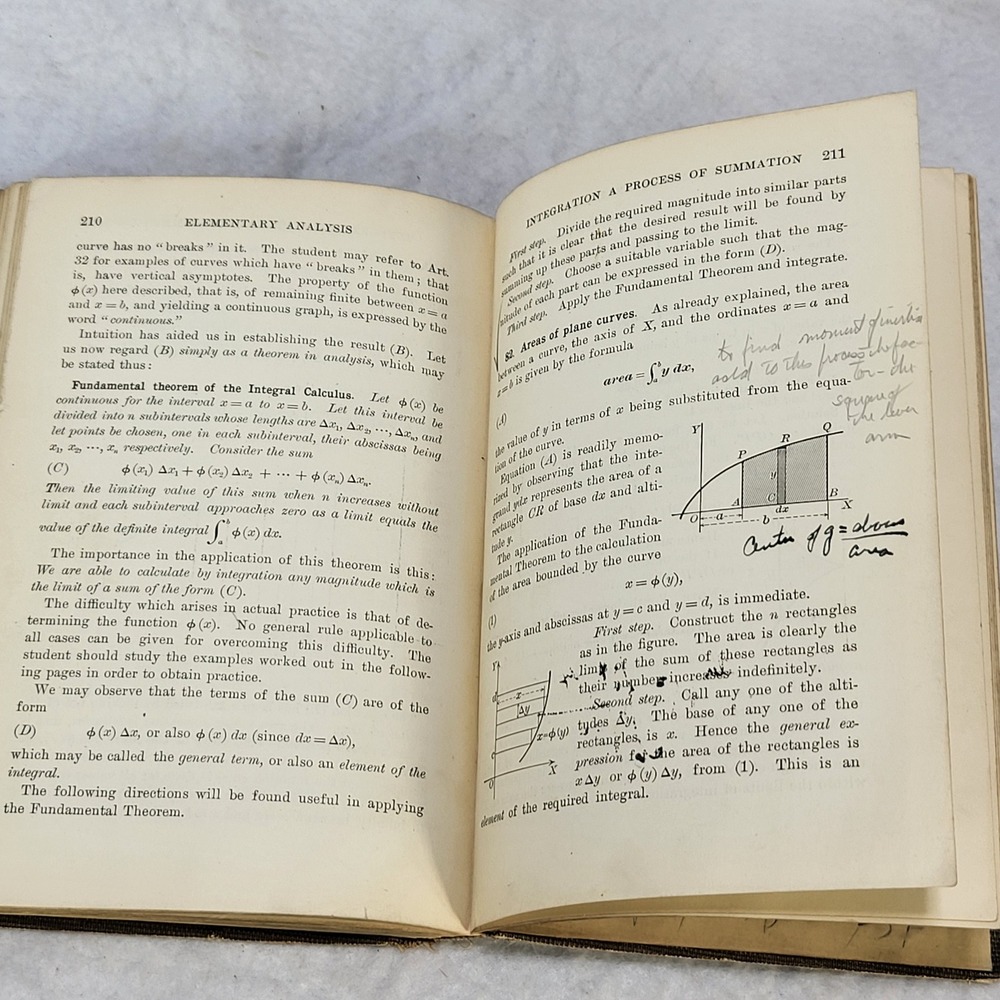 210 ELEMENTARY ANALYSIS
curve has no “breaks” in it. The student may refer to Art.
32 for examples of curves which have “breaks” in them; that
is, have vertical asymptotes. The property of the function
ϕ(x) here described, that is, of remaining finite between x = a
and x = b, and yielding a continuous graph, is expressed by the
word “continuous.”
Intuition has aided us in establishing the result (B). Let
us now regard (B) simply as a theorem in analysis, which may
be stated thus:
Fundamental theorem of the Integral Calculus. Let ϕ(x) be
continuous for the interval x = a to x = b. Let this interval be
divided into n subintervals whose lengths are Δx₁, Δx₂, ···, Δxₙ, and
let points be chosen, one in each subinterval, their abscissas being
x₁, x₂, ···, xₙ respectively. Consider the sum
(C) ϕ(x₁) Δx₁ + ϕ(x₂) Δx₂ + ··· + ϕ(xₙ) Δxₙ.
Then the limiting value of this sum when n increases without
limit and each subinterval approaches zero as a limit equals the
value of the definite integral ∫ₐᵇ ϕ(x) dx.
The importance in the application of this theorem is this:
We are able to calculate by integration any magnitude which is
the limit of a sum of the form (C).
The difficulty which arises in actual practice is that of de-
termining the function ϕ(x). No general rule applicable to
all cases can be given for overcoming this difficulty. The
student should study the examples worked out in the follow-
ing pages in order to obtain practice.
We may observe that the terms of the sum (C) are of the
form
(D) ϕ(x) Δx, or also ϕ(x) dx (since dx = Δx),
which may be called the general term, or also an element of the
integral.
The following directions will be found useful in applying
the Fundamental Theorem.
INTEGRATION A PROCESS OF SUMMATION 211
First step. Divide the required magnitude into similar parts
such that it is clear that the desired result will be found by
summing up these parts and passing to the limit.
Second step. Choose a suitable variable such that the mag-
nitude of each part can be expressed in the form (D).
Third step. Apply the Fundamental Theorem and integrate.
82. Areas of plane curves. As already explained, the area
between a curve, the axis of X, and the ordinates x = a and
x = b is given by the formula
to find moment of inertia
(A) area = ∫ₐᵇ y dx,
add to this process the fac-
tor - the
square of
the lever
arm
the value of y in terms of x being substituted from the equa-
tion of the curve.
Equation (A) is readily memo-
rized by observing that the inte-
grand ydx represents the area of a
rectangle CR of base dx and alti-
tude y.
The application of the Funda-
mental Theorem to the calculation
of the area bounded by the curve
Y P R Q
y
A C B
O a dx X
b
Center of g = above
area
(1) x = ϕ(y),
the y-axis and abscissas at y = c and y = d, is immediate.
First step. Construct the n rectangles
as in the figure. The area is clearly the
limit of the sum of these rectangles as
their number increases indefinitely.
Second step. Call any one of the alti-
tudes Δy. The base of any one of the
rectangles is x. Hence the general ex-
pression for the area of the rectangles is
xΔy or ϕ(y) Δy, from (1). This is an
element of the required integral.
Y
d
x
Δy
x=ϕ(y)
c
O X